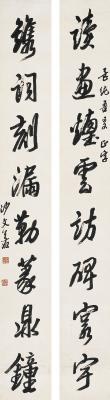 讀畫纏雲訪碑寰宇
正字
鐫詞刻漏勒篆鼎鐘
沙文若